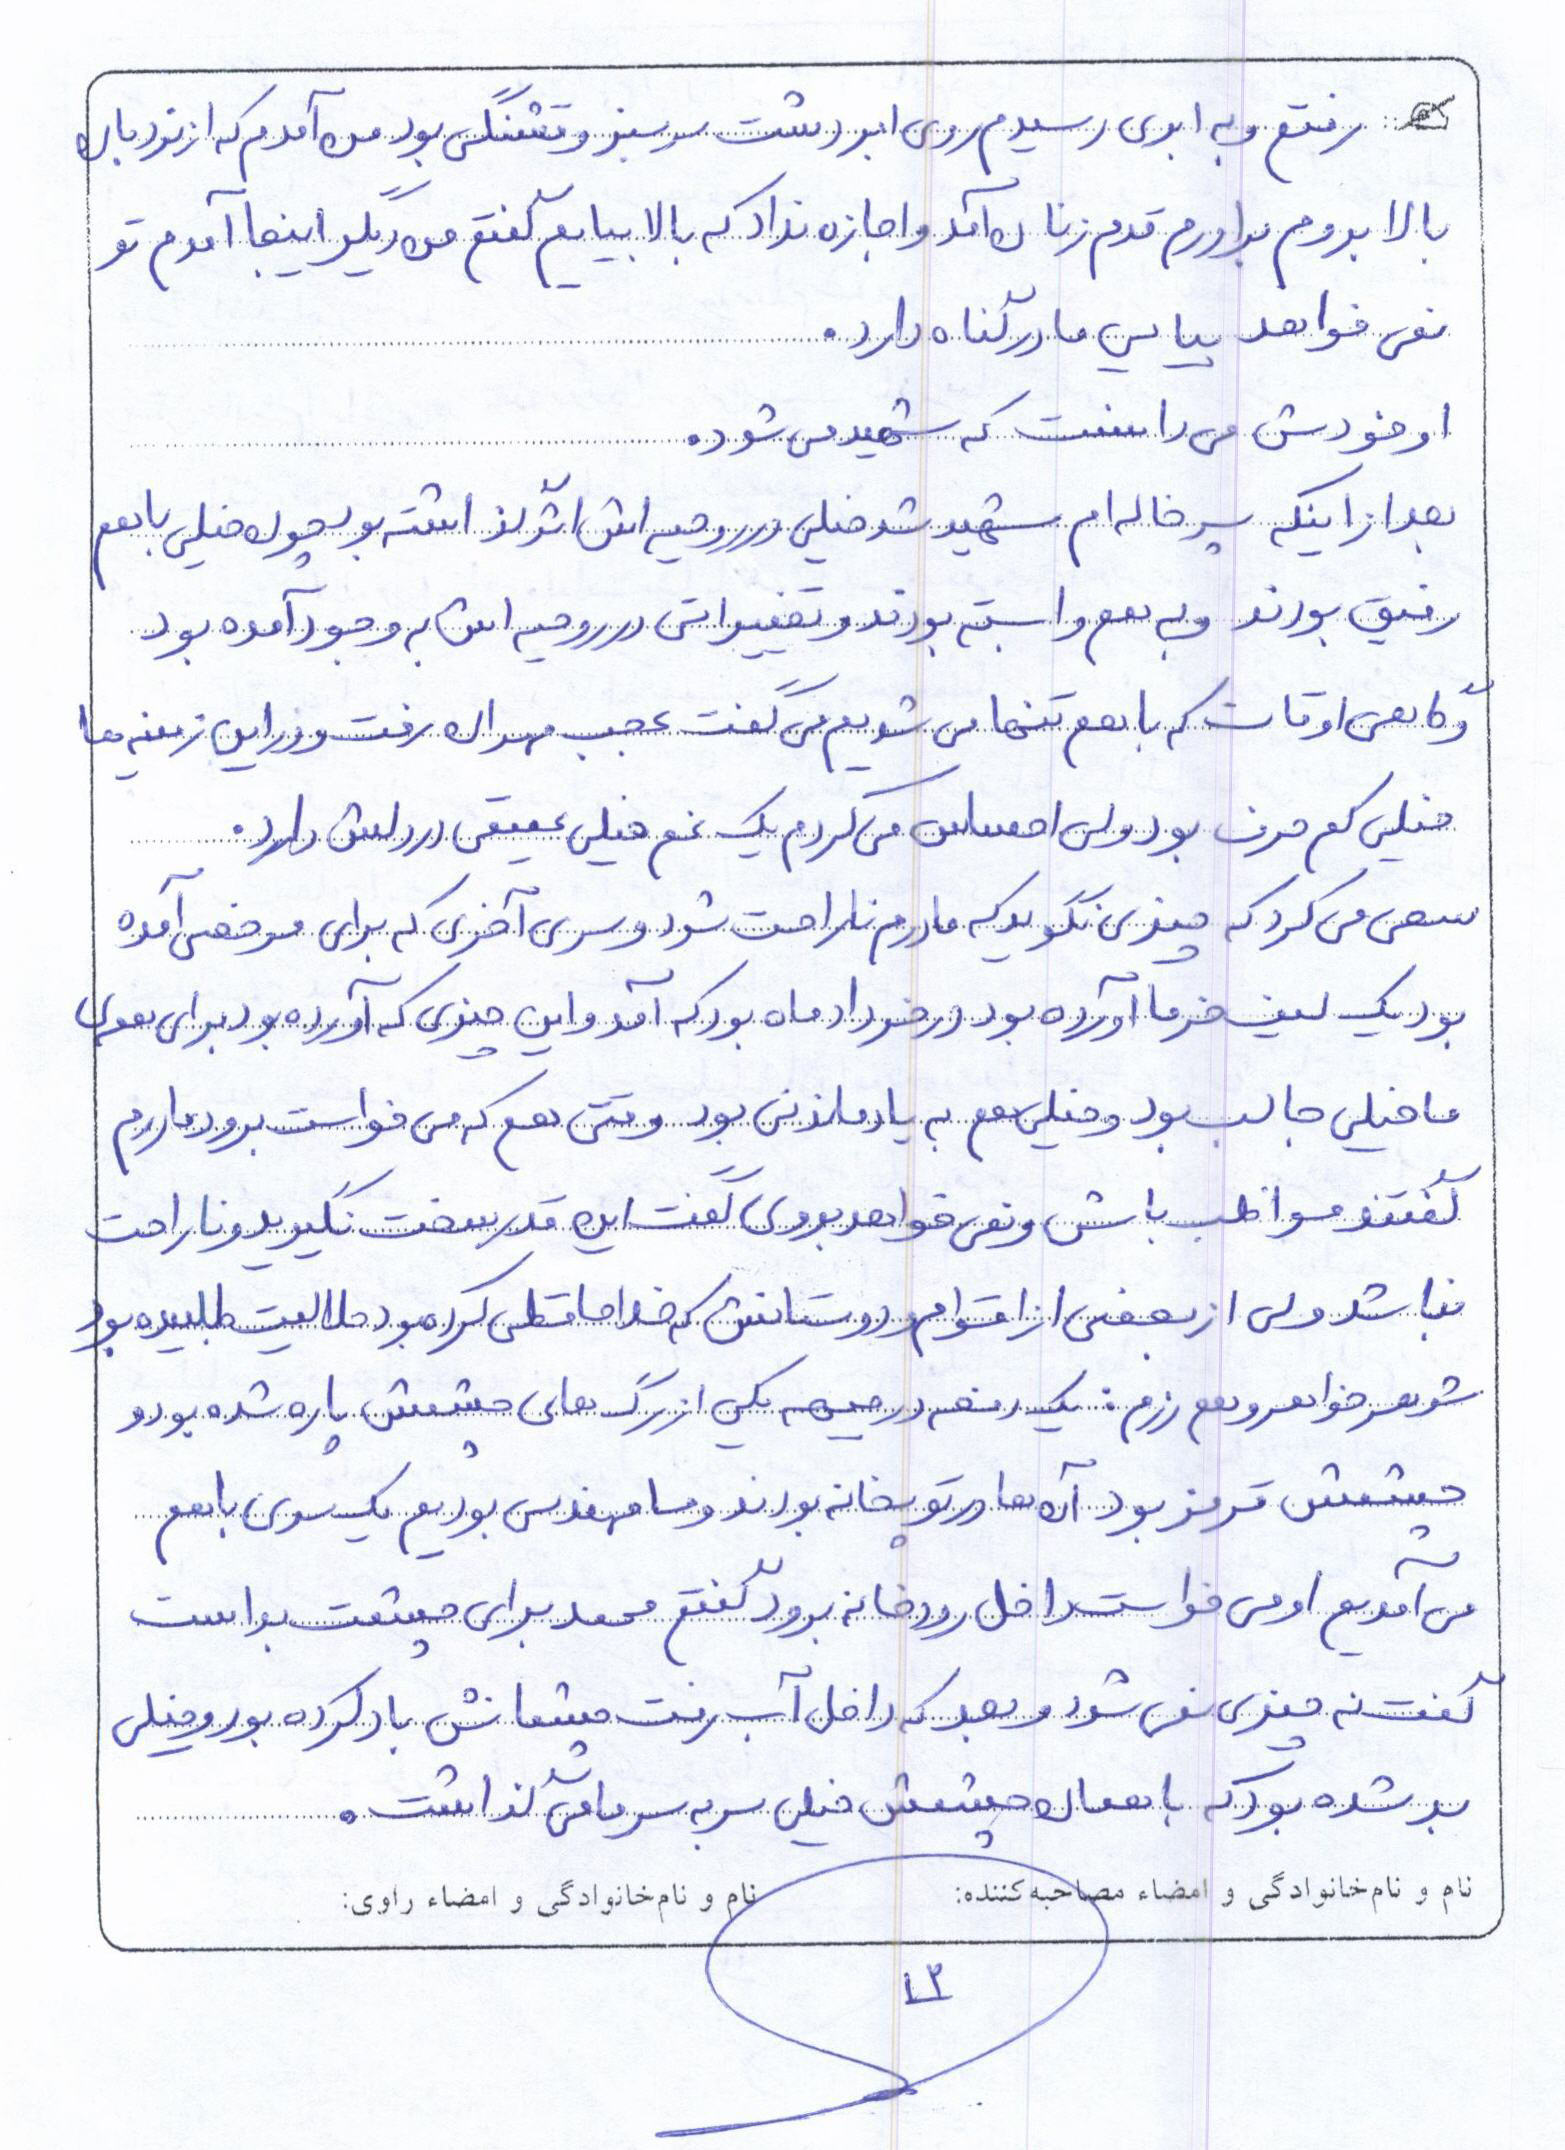 رفتم و به ابری رسیدم روی ابر دشت سرسبز و قشنگی بود من آمدم که از نردبان
بالا بروم برادرم قدم زنان آمد و اجازه نداد که بالا بیایم گفتم من دیگر اینجا آمدم تو
نمی خواهد بیایی مادر گناه دارد.
او خودش می دانست که شهید می شود.
بعد از اینکه پسر خاله ام شهید شد خیلی در روحیه اش اثر گذاشته بود چون خیلی با هم
رفیق بودند و به هم وابسته بودند و تغییراتی در روحیه اش به وجود آمده بود
و گاهی اوقات که با هم تنها می شویم می گفت عجب مهران رفت و در این زمینه ها
خیلی کم حرف بود ولی احساس می کردم یک غم خیلی عمیقی در دلش دارد.
سعی می کرد که چیزی نگوید که مادرم ناراحت شود و سری آخری که برای مرخصی آمده
بود یک لیف خرما آورده بود در خرداد ماه بود که آمد و این چیزی که آورده بود برای همه ی
ما خیلی جالب بود و خیلی هم به یادماندنی بود وقتی هم که می خواست برود مادرم
گفتند مواظب باش و نمی خواهد بروی گفت این قدر سخت نگیرید و ناراحت
نباشد ولی از بعضی از اقوام و دوستانش که خداحافظی کرده بود حلالیت طلبیده بود
شوهر خواهر و هم رزم: یک دفعه در جبهه یکی از رگ های چشمش پاره شده بود و
چشمش قرمز بود آن ها در توپخانه بودند و ما مهندسی بودیم یک سری با هم
می آمدیم او می خواست داخل رودخانه برود گفتم محمد برای چشمت بد است
گفت نه چیزی نمی شود و بعد که داخل آب رفت چشمانش باد کرده بود و خیلی
بد شده بود که با همان چشمش خیلی سر به سر ما می گذاشت.
نام و نام‌خانوادگی و امضاء مصاحبه‌کننده: نام و نام‌خانوادگی و امضاء راوی:
۱۳